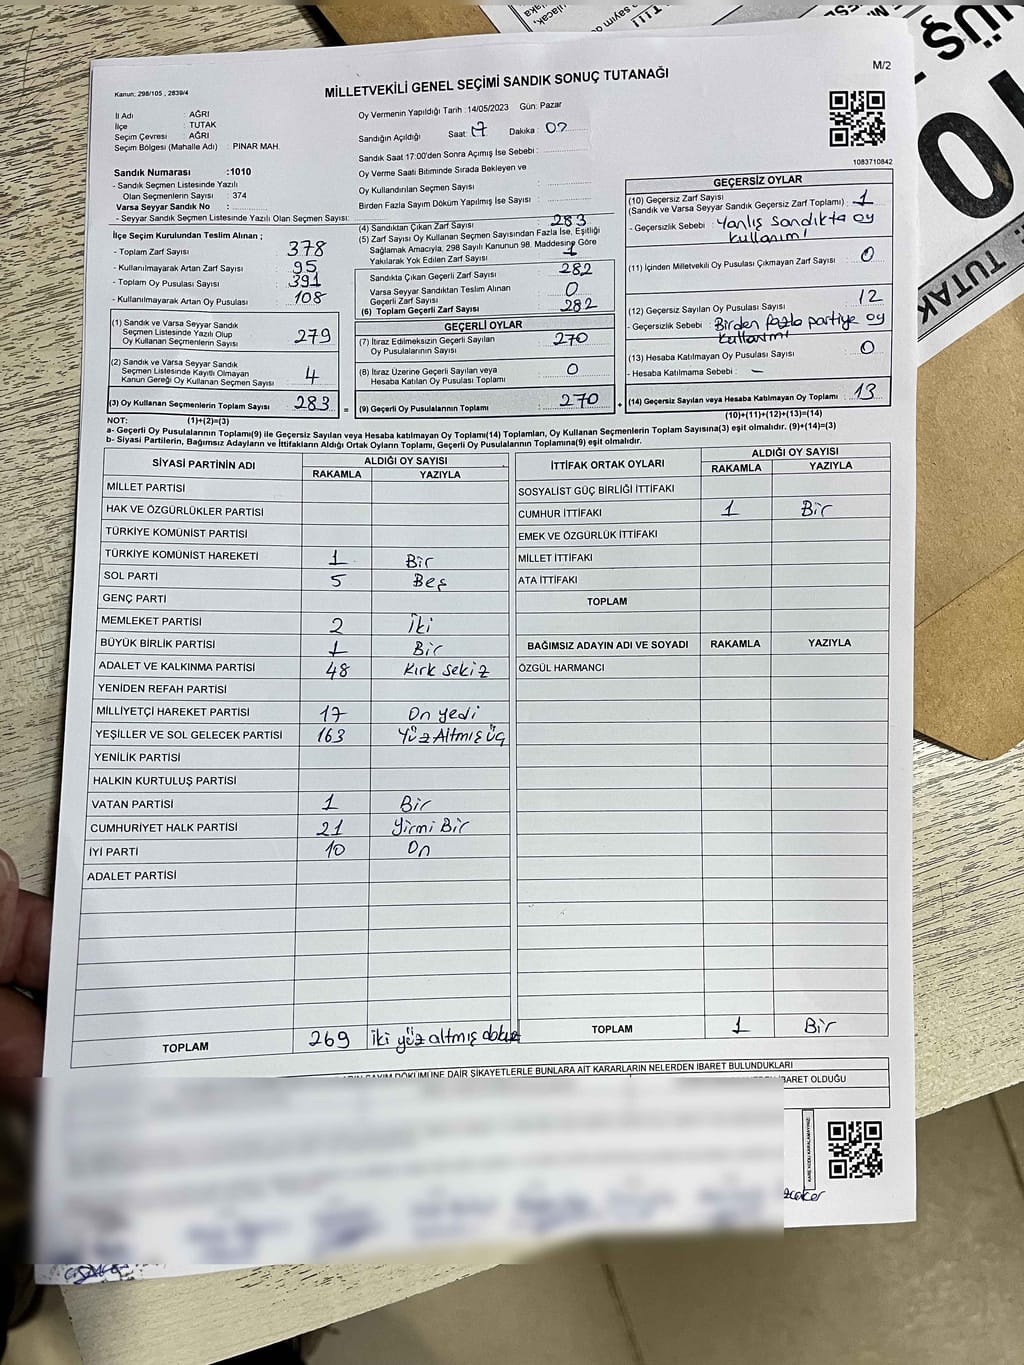 M/2
Kanun; 298/105 , 2839/4
MİLLETVEKİLİ GENEL SEÇİMİ SANDIK SONUÇ TUTANAĞI
İl Adı : AĞRI
İlçe : TUTAK
Seçim Çevresi : AĞRI
Seçim Bölgesi (Mahalle Adı) : PINAR MAH.
Sandık Numarası :1010
- Sandık Seçmen Listesinde Yazılı
Olan Seçmenlerin Sayısı : 374
Varsa Seyyar Sandık No :
- Seyyar Sandık Seçmen Listesinde Yazılı Olan Seçmen Sayısı:
Oy Vermenin Yapıldığı Tarih : 14/05/2023 Gün: Pazar
Sandığın Açıldığı Saat 17 Dakika : 02
Sandık Saat 17:00'den Sonra Açımış İse Sebebi :
Oy Verme Saati Bitiminde Sırada Bekleyen ve
Oy Kullandırılan Seçmen Sayısı :
Birden Fazla Sayım Döküm Yapılmış İse Sayısı :
1083710842
İlçe Seçim Kurulundan Teslim Alınan ;
- Toplam Zarf Sayısı 378
- Kullanılmayarak Artan Zarf Sayısı 95
- Toplam Oy Pusulası Sayısı 391
- Kullanılmayarak Artan Oy Pusulası 108
(1) Sandık ve Varsa Seyyar Sandık
Seçmen Listesinde Yazılı Olup
Oy Kullanan Seçmenlerin Sayısı 279
(2) Sandık ve Varsa Seyyar Sandık
Seçmen Listesinde Kayıtlı Olmayan
Kanun Gereği Oy Kullanan Seçmen Sayısı 4
(3) Oy Kullanan Seçmenlerin Toplam Sayısı 283 =
(4) Sandıktan Çıkan Zarf Sayısı 283
(5) Zarf Sayısı Oy Kullanan Seçmen Sayısından Fazla İse, Eşitliği
Sağlamak Amacıyla, 298 Sayılı Kanunun 98. Maddesine Göre
Yakılarak Yok Edilen Zarf Sayısı 1
Sandıkta Çıkan Geçerli Zarf Sayısı 282
Varsa Seyyar Sandıktan Teslim Alınan
Geçerli Zarf Sayısı 0
(6) Toplam Geçerli Zarf Sayısı 282
GEÇERLİ OYLAR
(7) İtiraz Edilmeksizin Geçerli Sayılan
Oy Pusulalarının Sayısı 270
(8) İtiraz Üzerine Geçerli Sayılan veya
Hesaba Katılan Oy Pusulası Toplamı 0
(9) Geçerli Oy Pusulalarının Toplamı 270 +
GEÇERSİZ OYLAR
(10) Geçersiz Zarf Sayısı
(Sandık ve Varsa Seyyar Sandık Geçersiz Zarf Toplamı) : 1
- Geçersizlik Sebebi : Yanlış sandıkta oy
kullanımı
(11) İçinden Milletvekili Oy Pusulası Çıkmayan Zarf Sayısı 0
(12) Geçersiz Sayılan Oy Pusulası Sayısı 12
- Geçersizlik Sebebi : Birden fazla partiye oy
kullanımı
(13) Hesaba Katılmayan Oy Pusulası Sayısı 0
- Hesaba Katılmama Sebebi : –
(14) Geçersiz Sayılan veya Hesaba Katılmayan Oy Toplamı : 13
NOT: (1)+(2)=(3) (10)+(11)+(12)+(13)=(14)
a- Geçerli Oy Pusulalarının Toplamı(9) ile Geçersiz Sayılan veya Hesaba katılmayan Oy Toplamı(14) Toplamları, Oy Kullanan Seçmenlerin Toplam Sayısına(3) eşit olmalıdır. (9)+(14)=(3)
b- Siyasi Partilerin, Bağımsız Adayların ve İttifakların Aldığı Ortak Oyların Toplamı, Geçerli Oy Pusulalarının Toplamına(9) eşit olmalıdır.
SİYASİ PARTİNİN ADI ALDIĞI OY SAYISI
RAKAMLA YAZIYLA
MİLLET PARTİSİ
HAK VE ÖZGÜRLÜKLER PARTİSİ
TÜRKİYE KOMÜNİST PARTİSİ
TÜRKİYE KOMÜNİST HAREKETİ 1 Bir
SOL PARTİ 5 Beş
GENÇ PARTİ
MEMLEKET PARTİSİ 2 İki
BÜYÜK BİRLİK PARTİSİ 1 Bir
ADALET VE KALKINMA PARTİSİ 48 Kırk sekiz
YENİDEN REFAH PARTİSİ
MİLLİYETÇİ HAREKET PARTİSİ 17 On yedi
YEŞİLLER VE SOL GELECEK PARTİSİ 163 Yüz Altmış üç
YENİLİK PARTİSİ
HALKIN KURTULUŞ PARTİSİ
VATAN PARTİSİ 1 Bir
CUMHURİYET HALK PARTİSİ 21 Yirmi Bir
İYİ PARTİ 10 On
ADALET PARTİSİ
TOPLAM 269 iki yüz altmış dokuz
İTTİFAK ORTAK OYLARI ALDIĞI OY SAYISI
RAKAMLA YAZIYLA
SOSYALİST GÜÇ BİRLİĞİ İTTİFAKI
CUMHUR İTTİFAKI 1 Bir
EMEK VE ÖZGÜRLÜK İTTİFAKI
MİLLET İTTİFAKI
ATA İTTİFAKI
TOPLAM
BAĞIMSIZ ADAYIN ADI VE SOYADI RAKAMLA YAZIYLA
ÖZGÜL HARMANCI
TOPLAM 1 Bir
SAYIM DÖKÜMÜNE DAİR ŞİKAYETLERLE BUNLARA AİT KARARLARIN NELERDEN İBARET BULUNDUKLARI
İBARET OLDUĞU
TUTAK